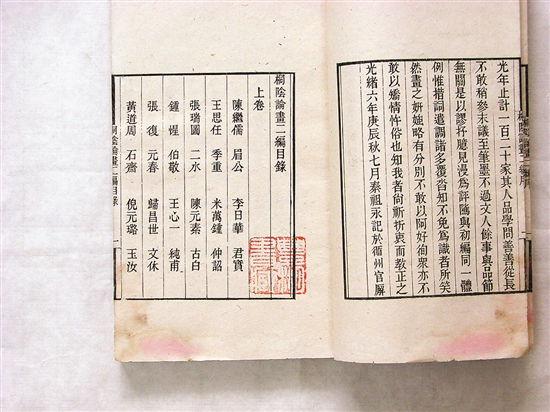 光年止計一百二十家其人品學問善善從長
不敢稍參末議至筆墨不過文人餘事與品節
無關是以謬抒臆見漫爲評騭與初編同一體
例惟措詞遣調諸多覆沓知不免爲識者所笑
然畫之妍媸略有分別不敢以阿好徇衆亦不
敢以矯情忤俗也知我者尚祈折衷而教正之
光緒六年庚辰秋七月秦祖永記於循州官廨
桐陰論畫二編目錄
上卷
陳繼儒 眉公 李日華 君實
王思任 季重 米萬鍾 仲詔
張瑞圖 二水 陳元素 古白
鍾惺 伯敬 王心一 純甫
張復 元春 歸昌世 文休
黃道周 石齋 倪元璐 玉汝
桐陰論畫二編目錄 一